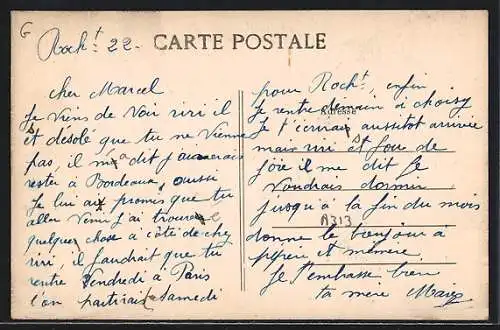 G
Rocht 22 - CARTE POSTALE
cher Marcel
Je viens de voir riri il
est désolé que tu ne vienne
pas, il m'a dit j'aimerais
rester à Bordeaux, aussi
Je lui ai promis que tu
aller venir j'ai trouver
quelques chose à côté de chez
riri, il faudrait que tu
rentre Vendredi à Paris
l'on partirait Samedi
pour Rocht, enfin
Je rentre demain à choisy
Adresse
Je t'écrirai aussitot arrivée
mais riri est fou de
joie il me dit Je
voudrais dormir
jusqu'à la fin du mois
A313
donne le bonjour à
et mémère
Je t'embrasse bien
ta mère